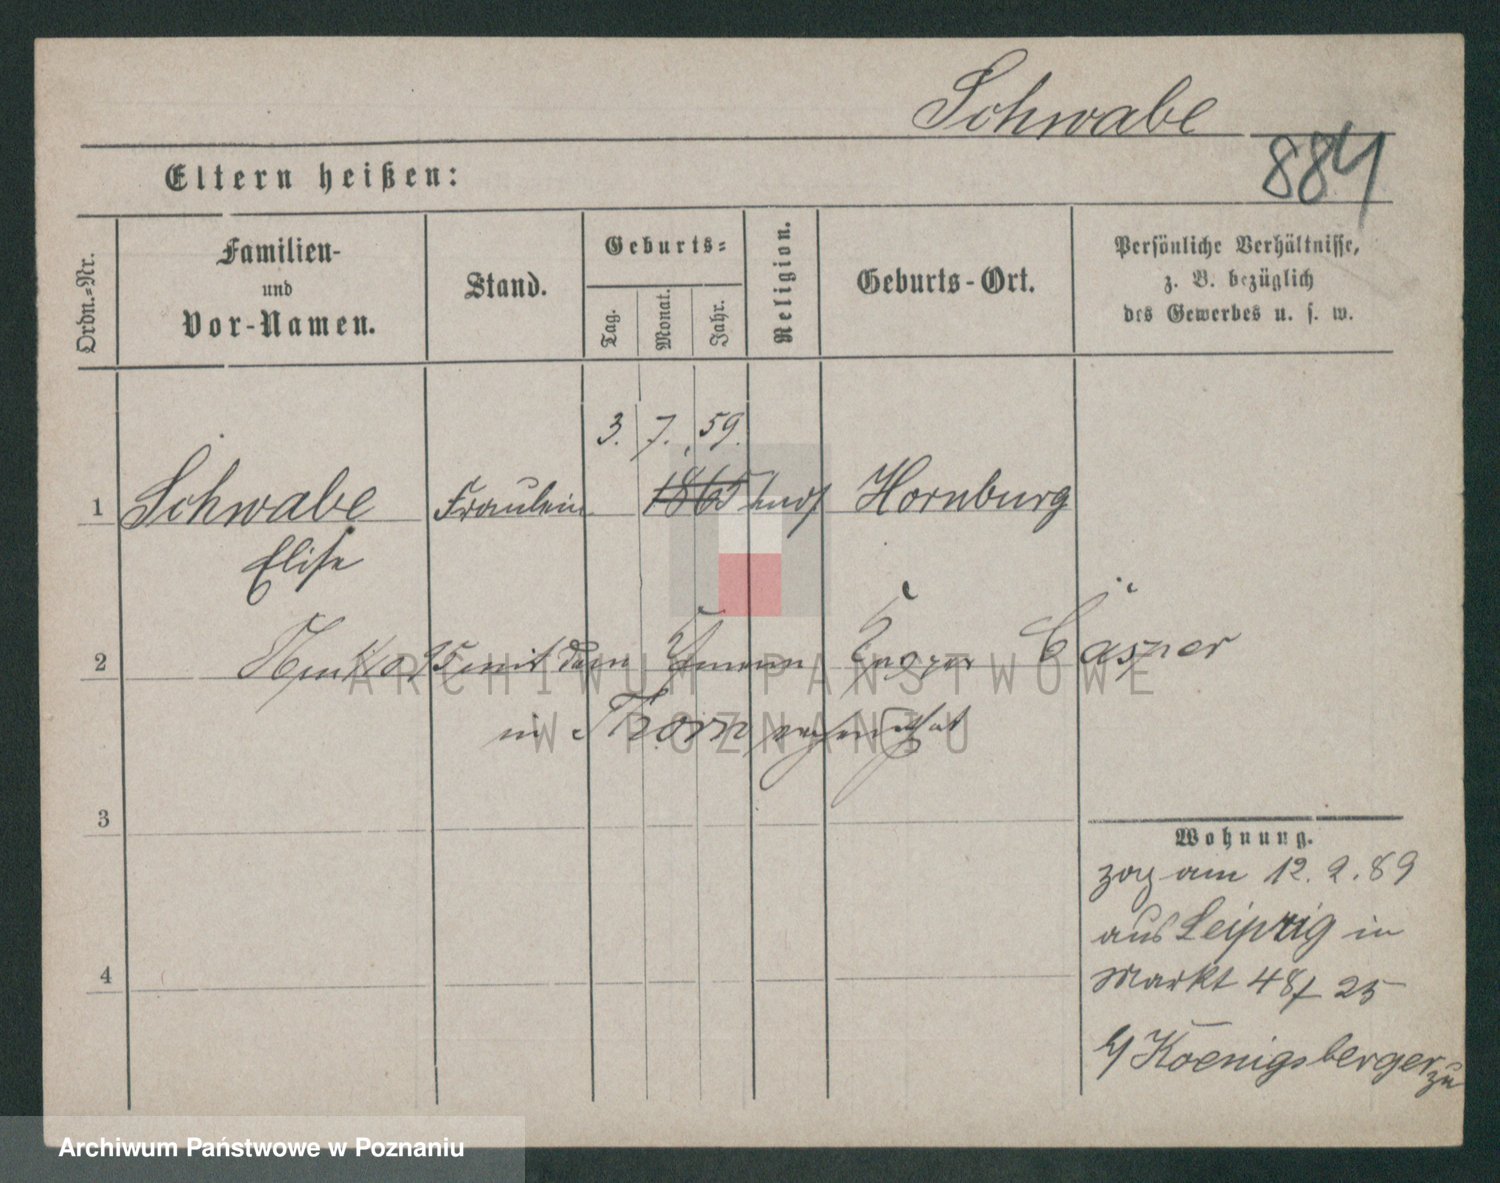 Schwabe
884
Eltern heißen:
Ordn.-Nr.
Familien-
und
Vor-Namen.
Stand.
Geburts-
Tag.
Monat.
Jahr.
Religion.
Geburts-Ort.
Persönliche Verhältnisse,
z. B. bezüglich
des Gewerbes u. s. w.
3. 7. 59.
1 Schwabe Fräulein 1865 Hornburg
Elise
2 mit dem Cäsper
in Thorn
3
4
Wohnung.
zog am 12. 2. 89
aus Leipzig in
Markt 48/ 25
b/ Koenigsberger zu
ARCHIWUM PAŃSTWOWE
W POZNANIU
Archiwum Państwowe w Poznaniu